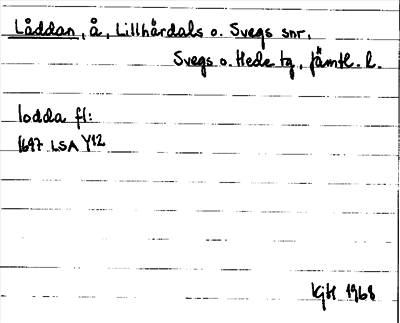 Låddan, å, Lillhärdals o. Svegs snr,
Svegs o. Hede tg, Jämtl. l.
lodda fl:
1647 LSA Y12
KgH 1968